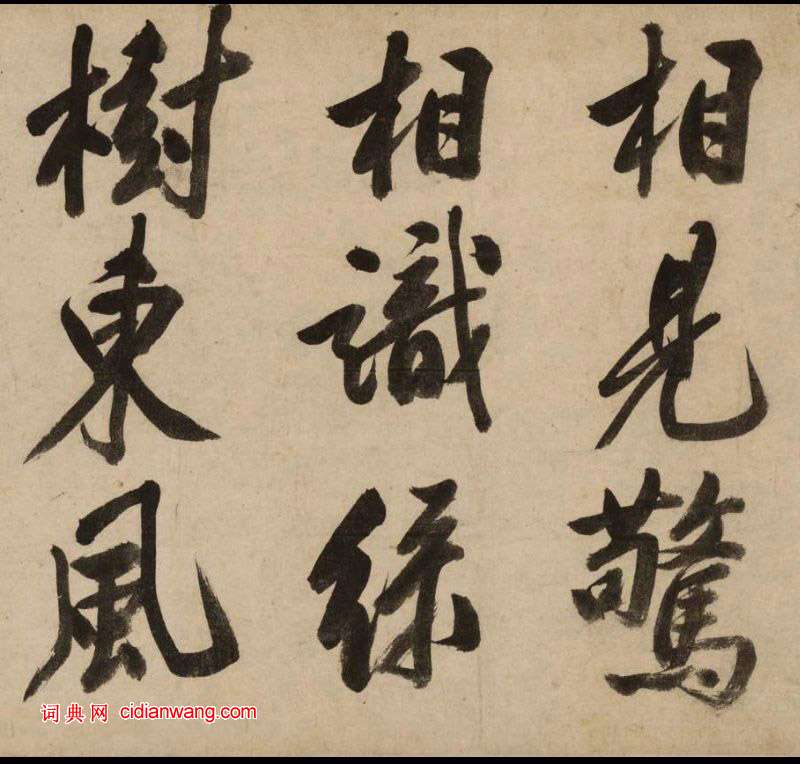 相見驚
相識綠
樹東風
词典网 cidianwang.com